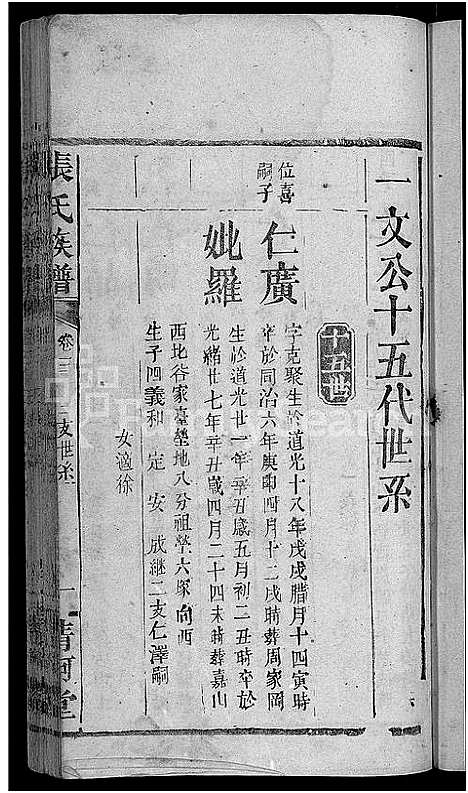 一文公十五代世系
十五世
位喜
嗣子
仁廣
妣羅
字克聚生於道光十八年戊戌腊月十四寅時
卒於同治六年庚午四月十二戌時葬周家岡
生於道光廿一年辛丑歲五月初二丑時卒於
光緒廿七年辛丑歲四月二十四未時葬嘉山
西北谷家臺塋地八分祖塋六塚向西
生子四義和 定 安 成繼二支仁澤嗣
女適徐
張氏族譜
卷三
三支世系
一
清河堂